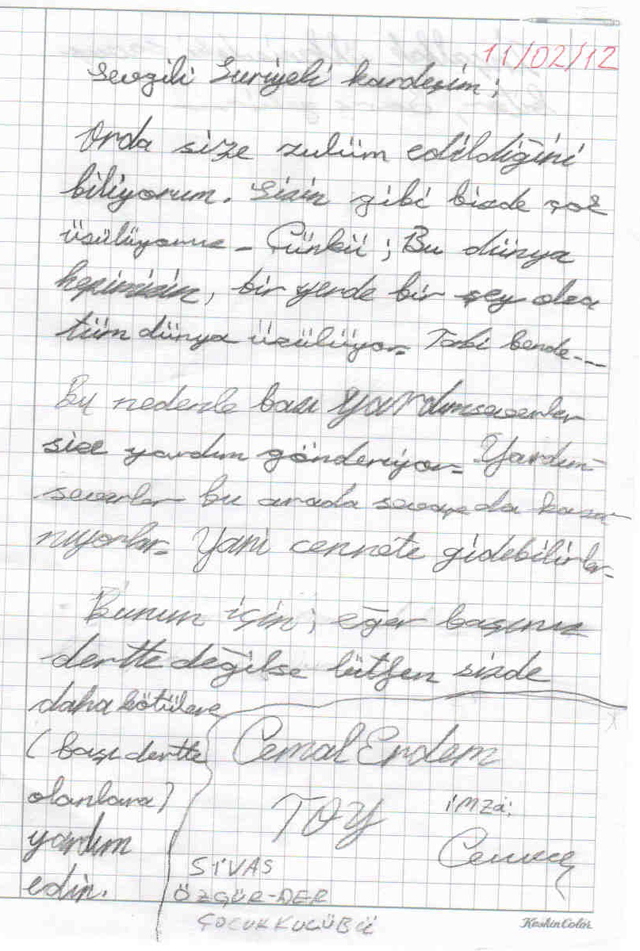 11/02/12
Sevgili Suriyeli kardeşim;
Orda size zulüm edildiğini
biliyorum. Sizin gibi bizde çok
üzülüyoruz. Çünkü; Bu dünya
hepimizin, bir yerde bir şey olsa
tüm dünya üzülüyor. Tabi bende...
Bu nedenle bazı yardımseverler
size yardım gönderiyor. Yardım-
severler bu arada sevap da kaza-
nıyorlar. Yani cennete gidebilirler.
Bunun için; eğer başınız
dertte değilse lütfen sizde
daha kötülere
(başı dertte
olanlara)
yardım
edin.
Cemal Erdem
TOY
imza;
SİVAS
ÖZGÜR-DER
ÇOCUK KULÜBÜ
KeskinColor